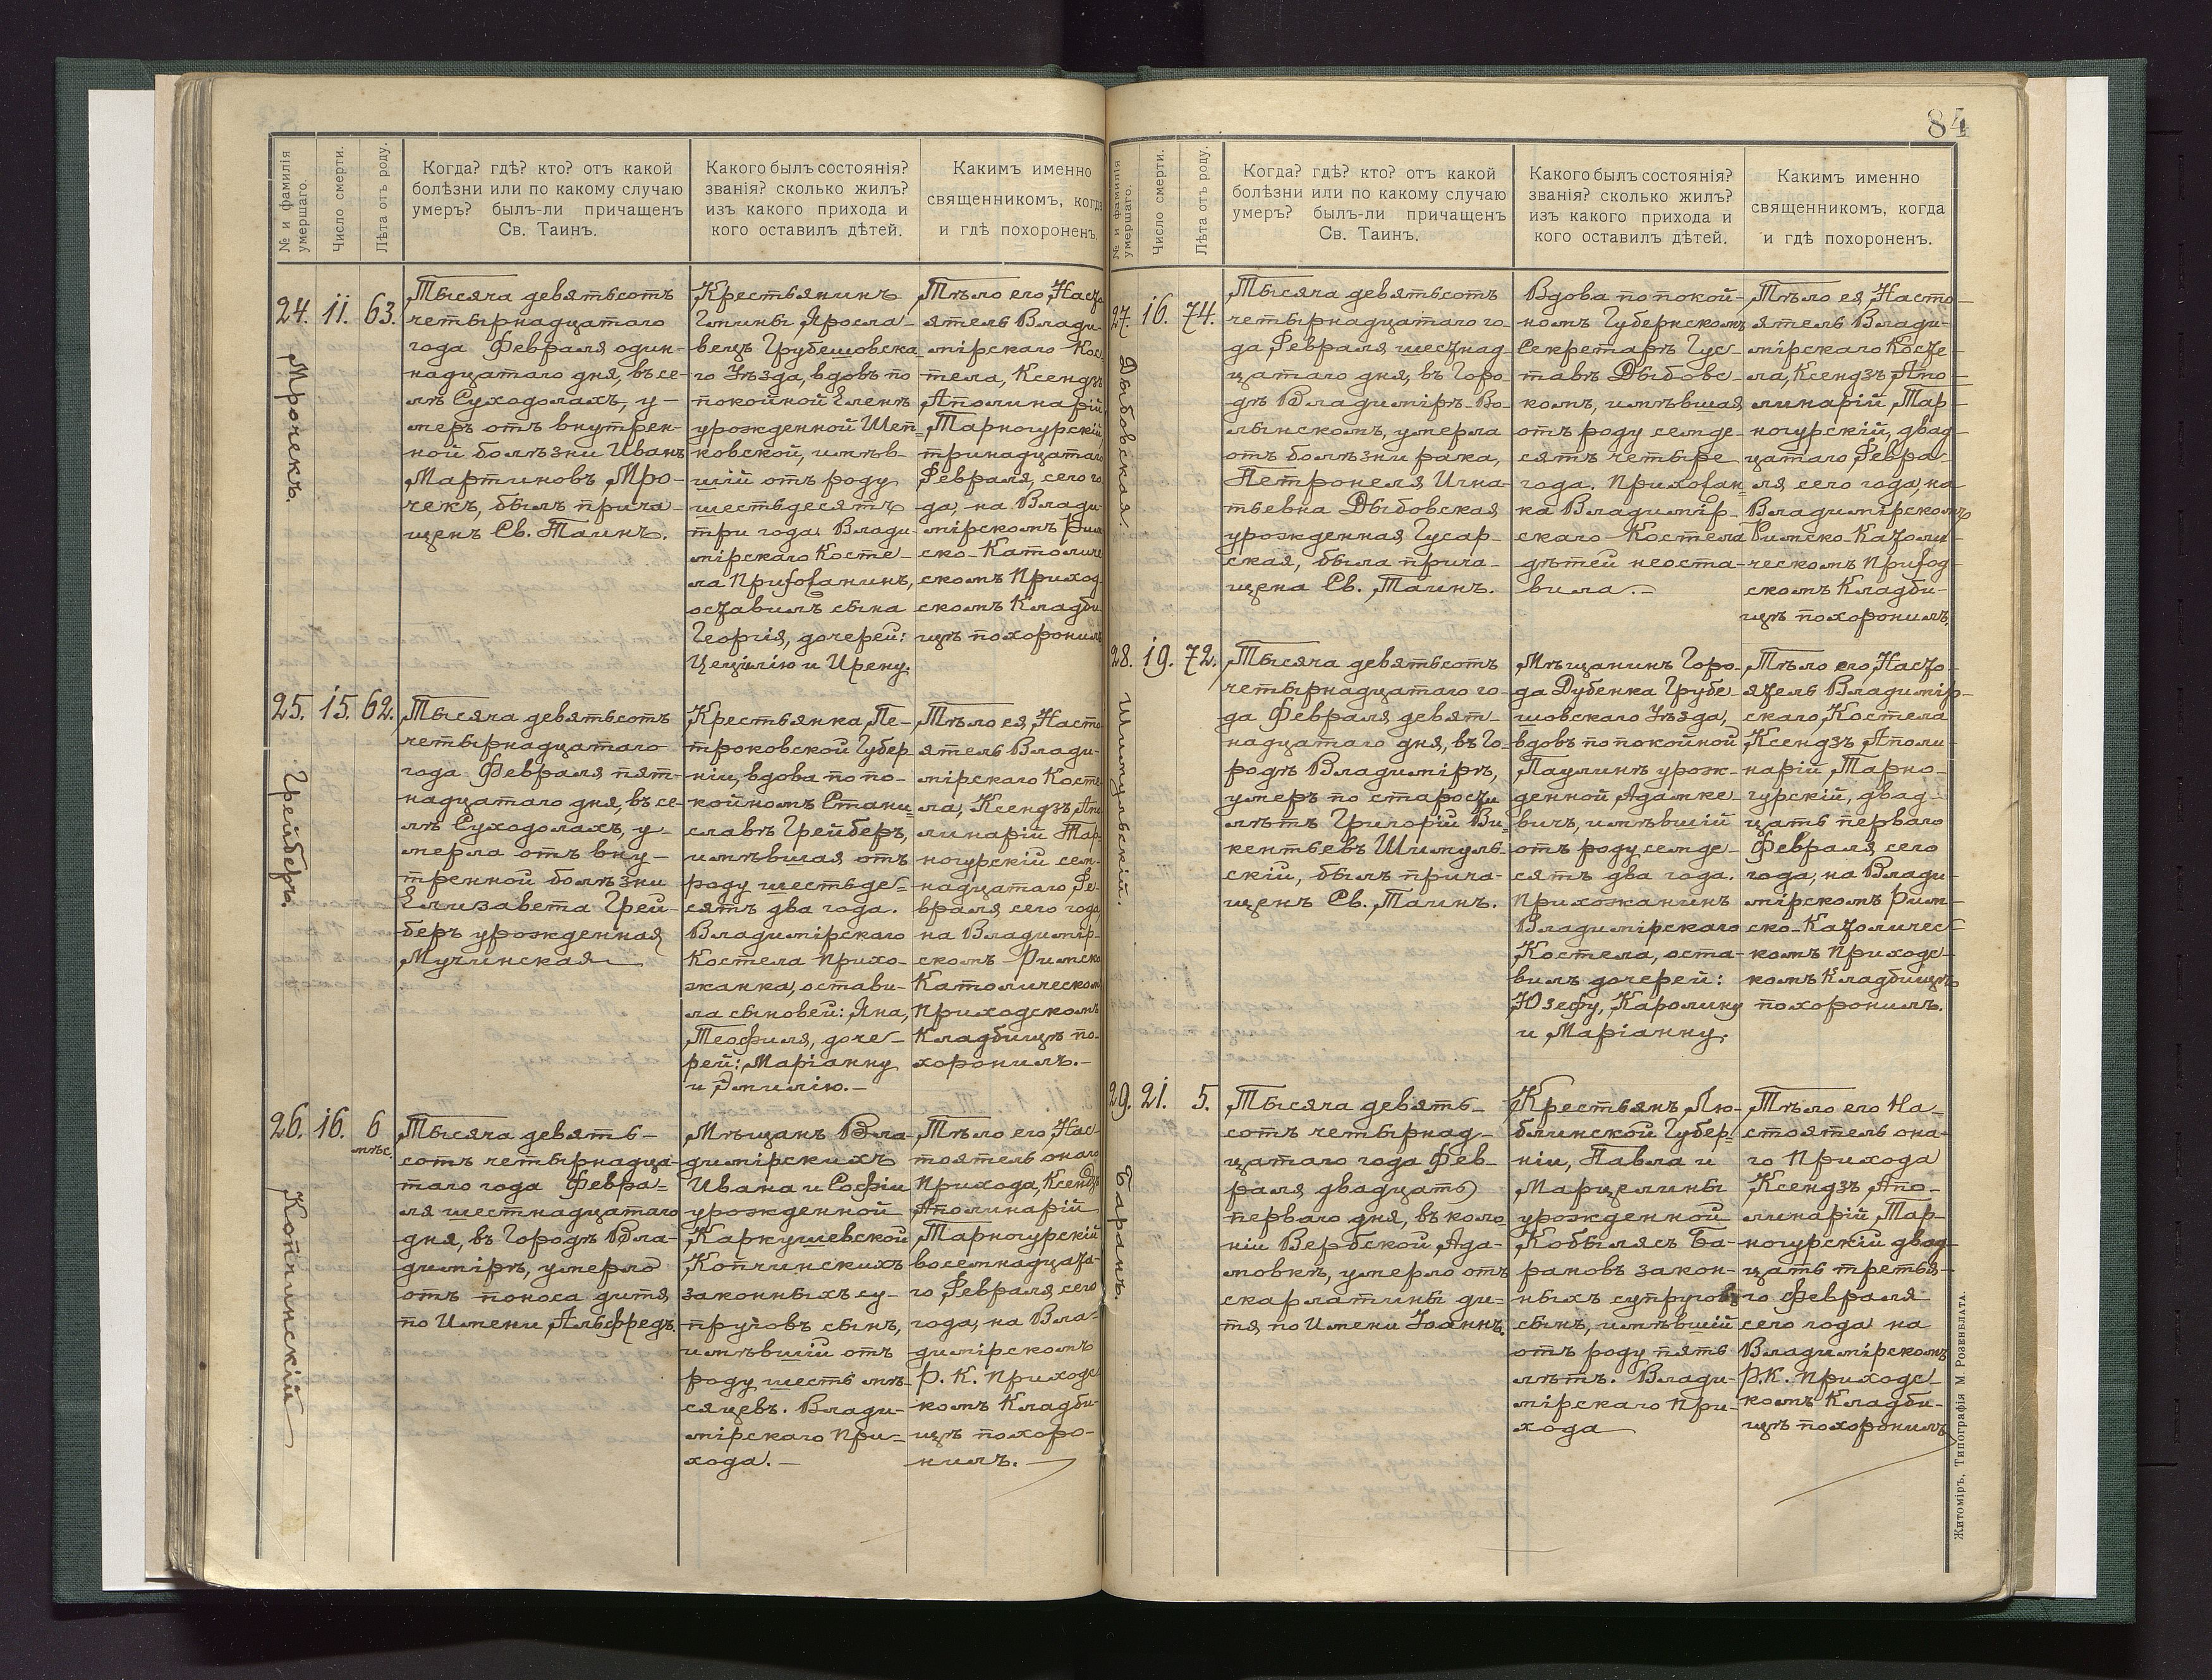 84
№ и фамилія умершаго.
Число смерти.
Лѣта отъ роду.
Когда? гдѣ? кто? отъ какой
болѣзни или по какому случаю
умеръ? былъ-ли причащенъ
Св. Таинъ.
Какого былъ состоянія?
званія? сколько жилъ?
изъ какого прихода и
кого оставилъ дѣтей.
Каким именно
священникомъ, когда
и гдѣ похороненъ.
24. 11. 63.
Мрочекъ.
Тысяча девятьсотъ
четырнадцатаго
года Февраля один-
надцатаго дня, въ се-
лѣ Суходолахъ, у-
меръ отъ внутрен-
ной болѣзни Иванъ
Мартиновъ Мро-
чекъ, былъ прича-
щенъ Св. Таинъ.
Крестьянинъ
Гмины Яросла-
вецъ Грубешовска-
го Уѣзда, вдовъ по
покойной Еленѣ
урожденной Шеп-
ковской, имѣв-
шій отъ роду
шестьдесятъ
три года. Влади-
мірскаго Косте-
ла Прихожанинъ,
оставилъ сына
Георгія, дочерей:
Цецілію и Ирену.
Тѣло его, Насто
ятель Влади-
мірскаго Кос-
тела, Ксендзъ
Аполинарій
Тарногурскій
тринадцатаго
Февраля, сего го
да, на Влади-
мірскомъ Рим
ско-Католиче
скомъ Приход
скомъ Кладби
щѣ похоронилъ
25. 15. 62.
Грейберъ.
Тысяча девятьсотъ
четырнадцатаго
года Февраля пят-
надцатаго дня, въ се-
лѣ Суходолахъ, у-
мерла отъ вну-
тренной болѣзни
Елизавета Грей-
беръ урожденная
Мучинская
Крестьянка, Пе-
троковской Губер
ніи, вдова по по-
койномъ Стани-
славѣ Грейберъ,
имѣвшая отъ
роду шестьде-
сятъ два года.
Владимірскаго
Костела прихо-
жанка, остави-
ла сыновей: Яна,
Теофиля, доче-
рей: Маріанну
и Эмилію.-
Тѣло ея, Насто
ятель Влади-
мірскаго Косте
ла, Ксендзъ, Апо
линарій Тар-
ногурскій сем-
надцатаго, Фе-
враля, сего года,
на Владимір-
скомъ Римско
Католическомъ
Приходскомъ
Кладбищѣ по-
хоронилъ.-
26. 16. 6
мѣс.
Копчинскій
Тысяча девять-
сотъ четырнадца-
таго года Февра-
ля шестнадцатаго
дня, въ Городѣ Вла-
димірѣ, умерло
отъ поноса дитя
по Имени Альфредъ.
Мѣщанъ Вла-
димірскихъ
Ивана и Софіи
урожденной
Каркушевской
Копчинскихъ
законныхъ су-
пруговъ сынъ,
имѣвшій отъ
роду шесть мѣ-
сяцевъ. Влади-
мірскаго При-
хода.-
Тѣло его, Нас-
тоятель онаго
Прихода, Ксендзъ
Аполинарій
Тарногурскій
восемнадцата-
го Февраля сего
года, на Вла-
димірскомъ
Р. К. Приходс
комъ Кладби-
щѣ похоро-
нилъ.-
№ и фамилія умершаго.
Число смерти.
Лѣта отъ роду.
Когда? гдѣ? кто? отъ какой
болѣзни или по какому случаю
умеръ? былъ-ли причащенъ
Св. Таинъ.
Какого былъ состоянія?
званія? сколько жилъ?
изъ какого прихода и
кого оставилъ дѣтей.
Каким именно
священникомъ, когда
и гдѣ похороненъ.
27. 16. 74.
Дыбовская.
Тысяча девятьсотъ
четырнадцатаго го-
да Февраля шестнад-
цатаго дня, въ Горо-
дѣ Владимірѣ-Во-
лынскомъ, умерла
отъ болѣзни рака,
Петронеля Игна-
тьевна Дыбовская
урожденная Гусар-
ская, была прича-
щена Св. Таинъ.
Вдова по покой-
номъ Губернскомъ
Секретарѣ Гус-
тавѣ Дыбовс-
комъ, имѣвшая
отъ роду семде-
сятъ четыре
года. Прихожан-
ка Владимір-
скаго Костела
дѣтей неоста-
вила.-
Тѣло ея, Насто-
ятель Влади-
мірскаго Косте-
ла, Ксендзъ Апо-
линарій Тар-
ногурскій, двад-
цатаго Февра-
ля сего года, на
Владимірскомъ
Римско-Католи-
ческомъ Приход-
скомъ Кладби-
щѣ похоронилъ
28. 19. 72.
Шимульскій.
Тысяча девятьсотъ
четырнадцатаго го-
да Февраля девят-
надцатаго дня, въ Го-
родѣ Владимірѣ,
умеръ по старости
лѣтъ Григорій Ви-
кентьевъ Шимуль-
скій, былъ прича-
щенъ Св. Таинъ.
Мѣщанинъ Горо-
да Дубенка Грубе-
шовскаго Уѣзда,
вдовъ по покойной
Паулинѣ урож-
денной Адамке-
вичъ, имѣвшій
отъ роду семде-
сятъ два года.
Прихожанинъ
Владимірскаго
Костела, оста-
вилъ дочерей:
Юзефу, Каролину
и Маріанну.
Тѣло его, Насто-
ятель Владимір-
скаго, Костела
Ксендзъ Аполи-
нарій Тарно-
гурскій, двад-
цать перваго
Февраля, сего
года, на Влади-
мірскомъ Рим-
ско-Католичес-
комъ Приходс-
комъ Кладбищѣ
похоронилъ.
29. 21. 5.
Баранъ
Тысяча девять-
сотъ четырнад-
цатаго года Фев-
раля двадцать
перваго дня, въ коло-
ніи Вербской, Ада-
мовкѣ, умерло отъ
скарлатины ди-
тя, по Имени Іоаннъ.
Крестьянъ, Лю-
блинской Губер-
ніи, Павла и
Марцелины
урожденной
Кобылясъ Ба-
рановъ закон-
ныхъ супруговъ
сынъ, имѣвшій
отъ роду пять
лѣтъ. Влади-
мірскаго При-
хода
Тѣло его На-
стоятель она-
го Прихода
Ксендзъ Апо-
линарій Тар-
ногурскій двад-
цать третья-
го Февраля
сего года на
Владимірскомъ
Р.К. Приходс-
комъ Кладби-
щѣ похоронилъ
Житоміръ, Типографія М. Розенблата.